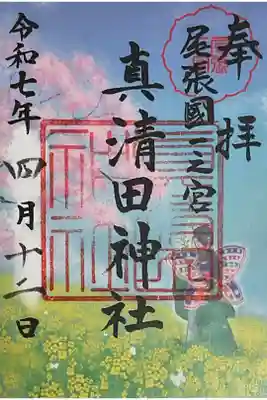 奉拝
尾張國一之宮
真清田神社
令和七年四月十二日